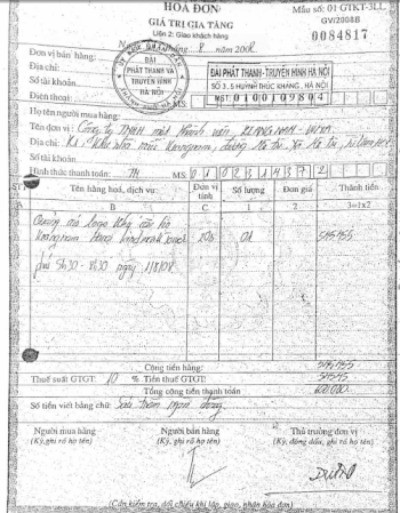 HÓA ĐƠN
GIÁ TRỊ GIA TĂNG
Liên 2: Giao khách hàng
Mẫu số: 01 GTKT-3LL
GV/2008B
0084817
tháng 8 năm 2008
Đơn vị bán hàng:
Địa chỉ:
Số tài khoản
Điện thoại: MS:
ĐÀI
PHÁT THANH VÀ
TRUYỀN HÌNH
HÀ NỘI
ĐÀI PHÁT THANH - TRUYỀN HÌNH HÀ NỘI
SỐ 3, 5 HUỲNH THÚC KHÁNG, HÀ NỘI
MST: 0100109804
Họ tên người mua hàng:
Tên đơn vị: Công ty TNHH một thành viên KEANGNAM - VINA
Địa chỉ:
Số tài khoản
Hình thức thanh toán: TM MS: 0102314372
STT Tên hàng hoá, dịch vụ Đơn vị tính Số lượng Đơn giá Thành tiền
A B C 1 2 3=1x2
Quảng cáo logo
Keangnam Hanoi Landmark Tower 01 545455
5h30 - 8h30 ngày 1/8/08
Cộng tiền hàng: 545455
Thuế suất GTGT: 10 % Tiền thuế GTGT: 54545
Tổng cộng tiền thanh toán 600.000
Số tiền viết bằng chữ: Sáu trăm nghìn đồng
Người mua hàng Người bán hàng Thủ trưởng đơn vị
(Ký, ghi rõ họ tên) (Ký, ghi rõ họ tên) (Ký, đóng dấu, ghi rõ họ tên)
(Cần kiểm tra, đối chiếu khi lập, giao, nhận hóa đơn)